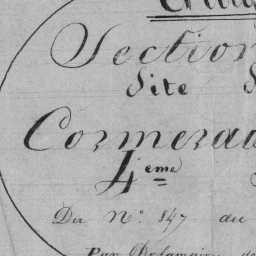 Section
Site
Cormerau
4eme
Du N° 147 au
Par Delamaire